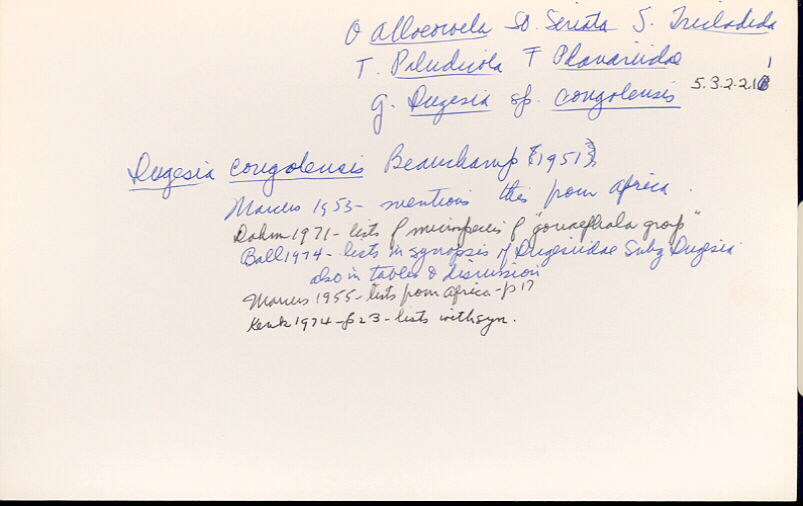 O Alloeocoela SO. Seriata S. Tricladida
T. Paludicola F Planariidae
g. Dugesia sp. congolensis 5.3.2.21
Dugesia congolensis Beauchamp {1951}
Marcus 1953- mentions this from Africa.
Dahm 1971- lists of microspecies of "gonocephala group"
Ball 1974- lists in synopsis of Dugesiidae Subg Dugesia
also in tables & discussion
Marcus 1955- lists from Africa - p 17
Kenk 1974- p 23 - lists with syn.